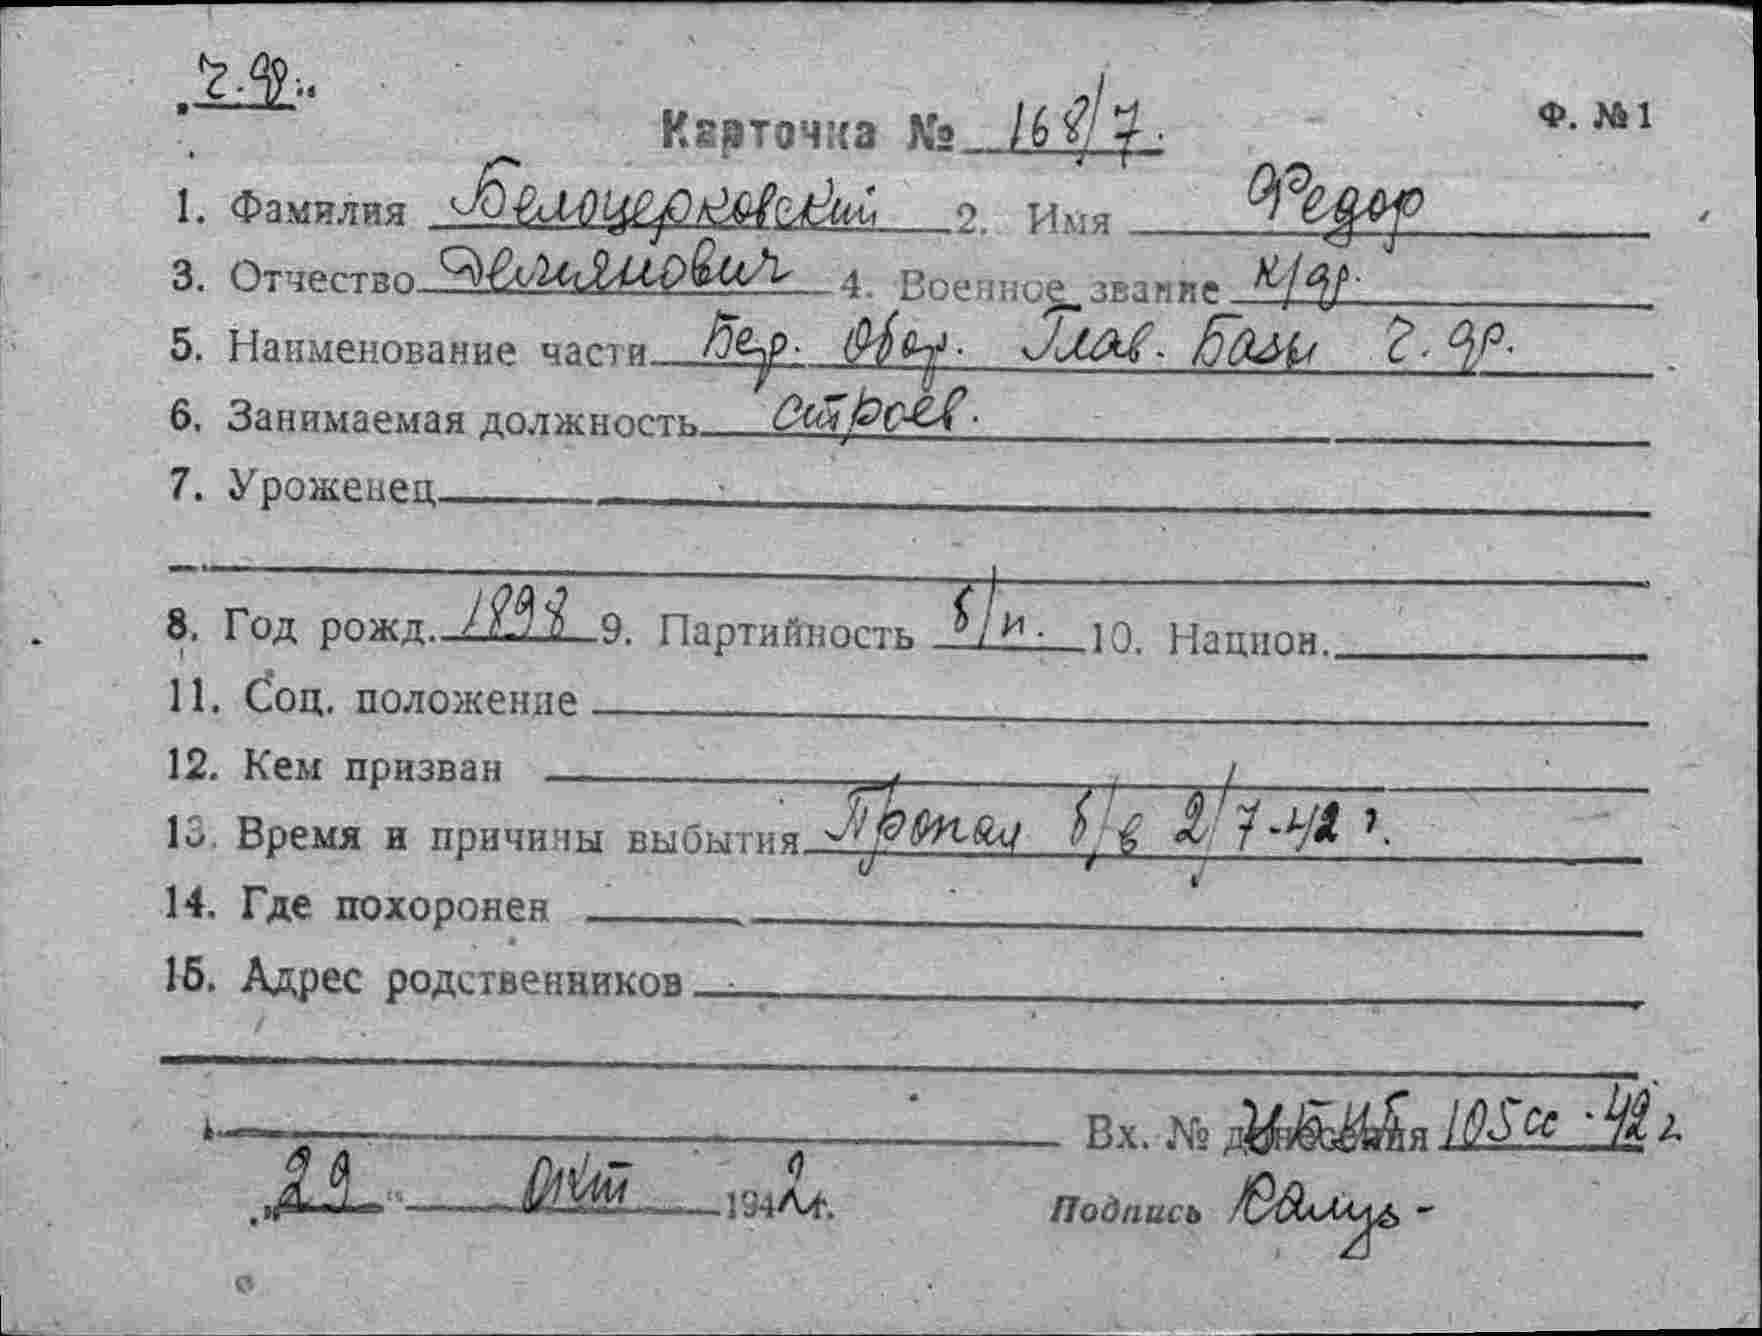 Ч.Ф.
Карточка № 168/7.
Ф. №1
1. Фамилия Белоцерковский 2. Имя Федор
3. Отчество Демьянович 4. Военное звание к/фл.
5. Наименование части Бер. Обор. Глав. Базы Ч.Ф.
6. Занимаемая должность строев.
7. Уроженец
8. Год рожд. 1898 9. Партийность б/п. 10. Национ.
11. Соц. положение
12. Кем призван
13. Время и причины выбытия Пропал б/в 2/7-42 г.
14. Где похоронен
15. Адрес родственников
Вх. № донесения 105сс-42 г.
"29" окт 1942г.
Подпись